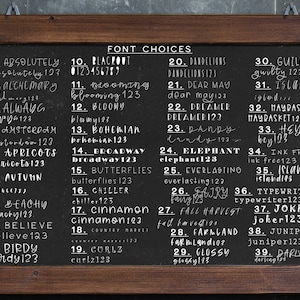 FONT CHOICES
ABSOLUTELY
absolutely123
ALCHEMY
alchemy123
ALWAYS
always123
AMSTERDAM
amsterdam123
APRICOTS
apricots123
AUTUMN
autumn123
BEACHY
beachy123
BELIEVE
believe123
BIRDY
birdy123
10. BLACKOUT
0123456789
11. BLOOMING
blooming123
12. BLOOMY
bloomy123
13. BOHEMIAN
bohemian123
14. BROADWAY
broadway123
15. BUTTERFLIES
butterflies123
16. CHILLER
chiller123
17. CINNAMON
cinnamon123
18. COUNTRY MARKET
COUNTRY MARKET
19. CURLZ
curlz123
20. DANDELIONS
DANDELIONS123
21. DEAR MAY
dear may123
22. DREAMER
DREAMER123
23. DANDY
24. ELEPHANT
elephant123
25. EVERLASTING
everlasting123
26. FAIRY
fairy123
27. FALL HARVEST
fall harvest123
28. FARMLAND
farmland123
29. GLOSSY
30. GUILTY
guilty 123
31. ISLAND
32. MAYBASKET
MAYBASKET123
33.
34. INK FREE
ink free123
35.
36. TYPEWRITER
typewriter123
37. JOKER
joker123
38. JUNIPER
juniper123
39. DARLING